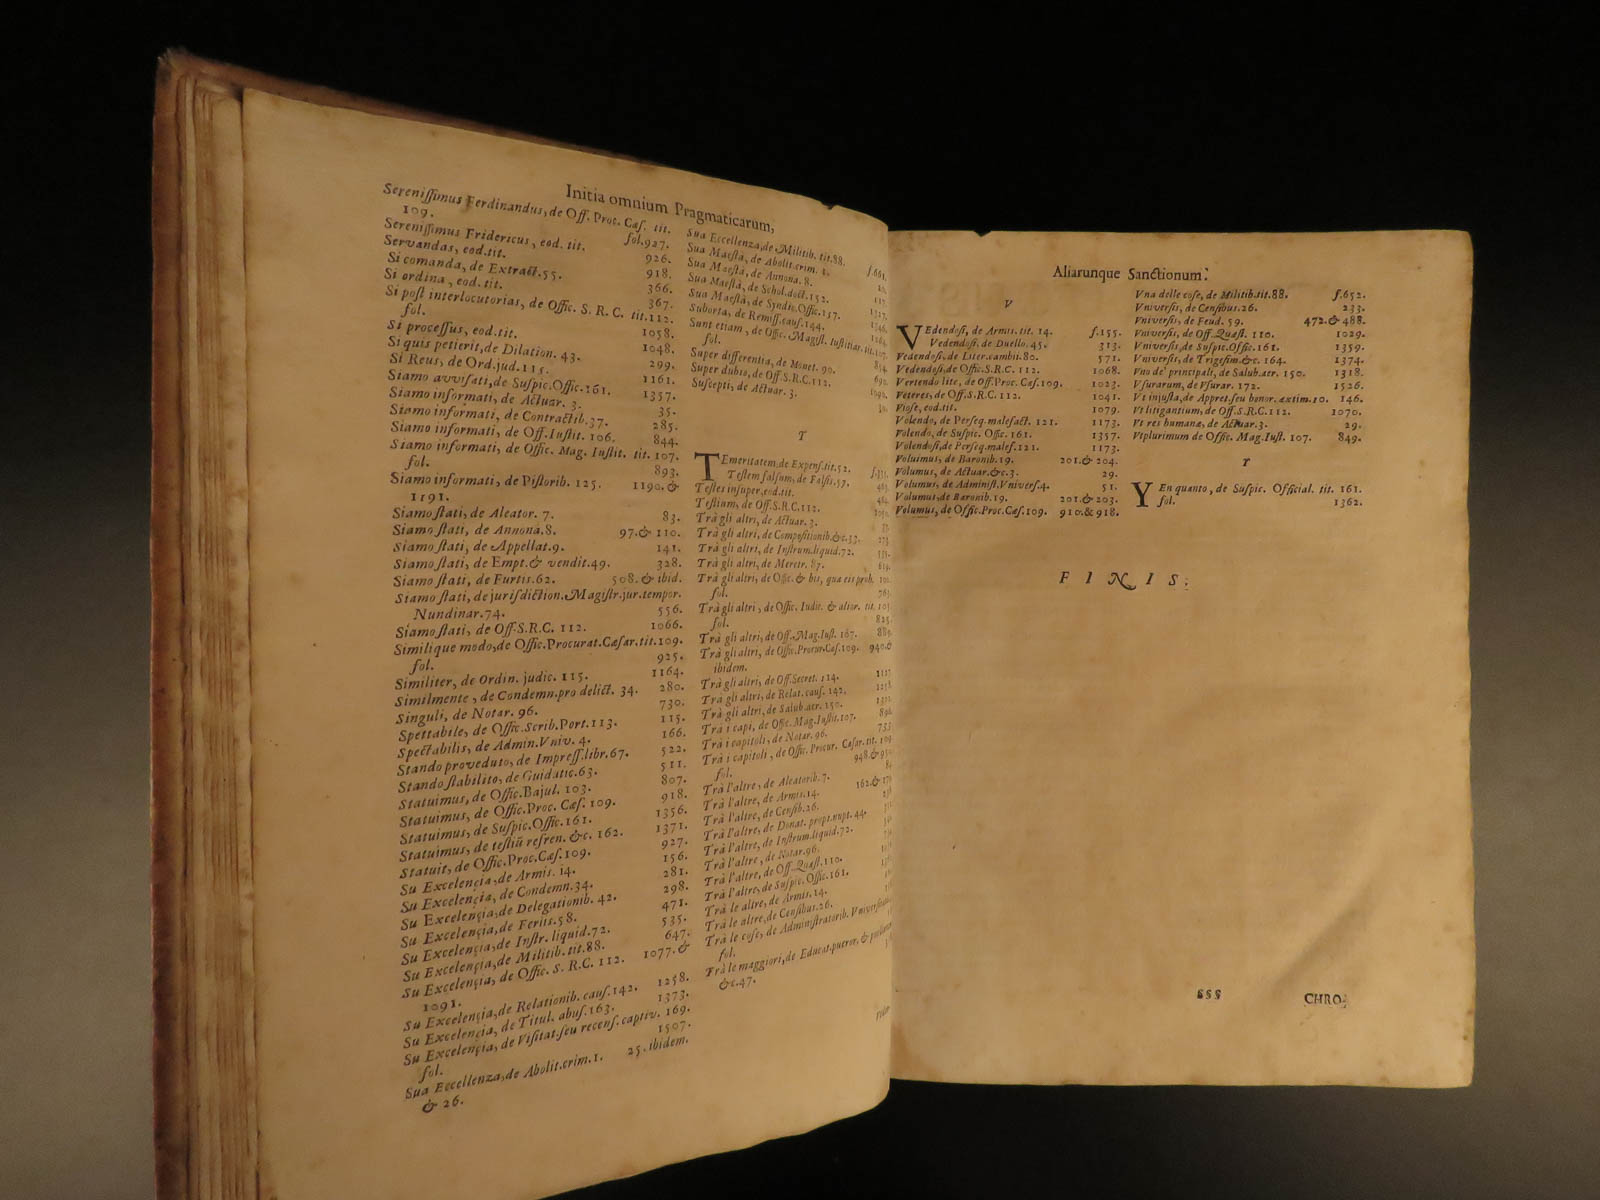 Initia omnium Pragmaticarum,
Sereniſſimus Ferdinandus, de Off. Proc. Cæſ. tit.
109. fol.927.
Sereniſſimus Fridericus, eod. tit. 926.
Servandas, eod.tit. 918.
Si comanda, de Extract.55. 366.
Si ordina, eod. tit. 367.
Si poſt interlocutorias, de Offic. S. R. C. tit.112.
fol. 1058.
Si proceſſus, eod.tit. 1048.
Si quis petierit, de Dilation. 43. 299.
Si Reus, de Ord.jud.115. 1161.
Siamo avviſati, de Suſpic.Offic.161. 1357.
Siamo informati, de Actuar. 3. 35.
Siamo informati, de Contractib.37. 285.
Siamo informati, de Off.Iuſtit. 106. 844.
Siamo informati, de Offic. Mag. Iuſtit. tit. 107.
fol. 893.
Siamo informati, de Piſtorib. 125. 1190. &
1191.
Siamo ſtati, de Aleator. 7. 83.
Siamo ſtati, de Annona.8. 97. & 110.
Siamo ſtati, de Appellat.9. 141.
Siamo ſtati, de Empt.& vendit.49. 328.
Siamo ſtati, de Furtis.62. 508. & ibid.
Siamo ſtati, de juriſdiction. Magiſtr.jur.tempor.
Nundinar.74. 556.
Siamo ſtati, de Off.S.R.C. 112. 1066.
Similique modo, de Offic.Procurat.Cæſar.tit.109.
fol. 925.
Similiter, de Ordin. judic. 115. 1164.
Similmente, de Condemn.pro delict. 34. 280.
Singuli, de Notar. 96. 730.
Spettabile, de Offic.Scrib.Port.113. 115.
Spectabilis, de Admin.Vniv. 4. 166.
Stando proveduto, de Impreſſ.libr.67. 522.
Stando ſtabilito, de Guidatic.63. 511.
Statuimus, de Offic.Bajul. 103. 807.
Statuimus, de Offic.Proc. Cæſ. 109. 918.
Statuimus, de Suſpic.Offic.161. 1356.
Statuimus, de teſtiũ refren. &c. 162. 1371.
Statuit, de Offic.Proc.Cæſ.109. 927.
Su Excelençia, de Armis. 14. 156.
Su Excelençia, de Condemn.34. 281.
Su Excelençia, de Delegationib. 42. 298.
Su Excelençia, de Feriis.58. 471.
Su Excelençia, de Inſtr. liquid.72. 535.
Su Excelençia, de Militib.tit.88. 647.
Su Excelençia, de Offic. S. R.C. 112. 1077. &
1091.
Su Excelençia, de Relationib. cauſ.142. 1258.
Su Excelençia, de Titul. abuſ.163. 1373.
Su Excelençia, de Viſitat.ſeu recenſ. captiv. 169.
fol. 1507.
Sua Eccellenza, de Abolit.crim.1. 25. ibidem.
& 26.
Sua Eccellenza, de Militib. tit.88. f.661.
Sua Maeſtà, de Abolit.crim. 1.
Sua Maeſtà, de Annona. 8.
Sua Maeſtà, de Schol.doct.152.
Sua Maeſtà, de Syndic.Offic.157.
Suborta, de Remiſſ.cauſ.144.
Sunt etiam, de Offic. Magiſt. Iuſtitiar. tit.107.
fol.
Super differentia, de Monet. 90.
Super dubio, de Off.S.R.C.112.
Suſcepti, de Actuar. 3.
T
TEmeritatem, de Expenſ.tit.52.
Teſtem falſum, de Falſis.57.
Teſtes inſuper, eod.tit.
Teſtium, de Off.S.R.C.112.
Trà gli altri, de Actuar. 3.
Trà gli altri, de Compoſitionib.&c.33.
Trà gli altri, de Inſtrum.liquid.72.
Trà gli altri, de Meretr. 87.
Trà gli altri, de Offic. & his, qua eis prob.
fol.
Trà gli altri, de Offic. Iudic. & alior. tit.
fol. 825.
Trà gli altri, de Off.Mag.Iuſt. 107. 889.
Trà gli altri, de Offic.Procur.Cæſ.109. 940. &
ibidem.
Trà gli altri, de Off.Secret. 114.
Trà gli altri, de Relat.cauſ. 142.
Trà gli altri, de Salub.aer. 150.
Trà i capi, de Offic. Mag.Iuſtit.107.
Trà i capitoli, de Notar. 96.
Trà i capitoli, de Offic. Procur. Cæſar.tit.109
fol. 948.&
Trà l'altre, de Aleatorib.7.
Trà l'altre, de Armis.14. 162.&
Trà l'altre, de Cenſib.26.
Trà l'altre, de Donat. propt.nupt. 44.
Trà l'altre, de Inſtrum.liquid.72.
Trà l'altre, de Notar.96.
Trà l'altre, de Off.Quæſt.110.
Trà l'altre, de Suſpic. Offic.161.
Trà le altre, de Armis.14.
Trà le altre, de Cenſibus.26.
Trà le coſe, de Adminiſtratorib.
fol.
Frà le maggiori, de Educat.pueror. &
&c.47.
Aliarunque Sanctionum.
V
VEdendoſi, de Armis. tit. 14. f.155.
Vedendoſi, de Duello. 45. 313.
Vedendoſi, de Liter.cambii.80. 571.
Vedendoſi, de Offic.S.R.C. 112. 1068.
Vertendo lite, de Off.Proc. Cæſ.109. 1023.
Veteres, de Off.S.R.C.112. 1041.
Vioſe, eod.tit. 1079.
Volendo, de Perſeq.malefact. 121. 1173.
Volendo, de Suſpic. Offic. 161. 1357.
Volendoſi, de Perſeq.maleſ.121. 1173.
Voluimus, de Baronib.19. 201. & 204.
Volumus, de Actuar.&c.3. 29.
Volumus, de Adminiſt.Vniverſ.4. 51.
Volumus, de Baronib.19. 201. & 203.
Volumus, de Offic.Proc.Cæſ.109. 910.& 918.
Vna delle coſe, de Militib.tit.88. f.652.
Vniverſis, de Cenſibus.26. 233.
Vniverſis, de Feud. 59. 472.& 488.
Vniverſis, de Off.Quæſt. 110. 1029.
Vniverſis, de Suſpic.Offic.161. 1359.
Vniverſis, de Trigeſim.&c. 164. 1374.
Vno de' principali, de Salub.aer. 150. 1318.
Vſurarum, de Vſurar. 172. 1526.
Vt injuſta, de Appret.ſeu bonor. æxtim.10. 146.
Vt litigantium, de Off.S.R.C.112. 1070.
Vt res humanæ, de Actuar.3. 29.
Vtplurimum de Offic. Mag.Iuſt. 107. 849.
Y
YEn quanto, de Suſpic. Official. tit. 161.
fol. 1362.
FINIS.
§§§ CHRO-